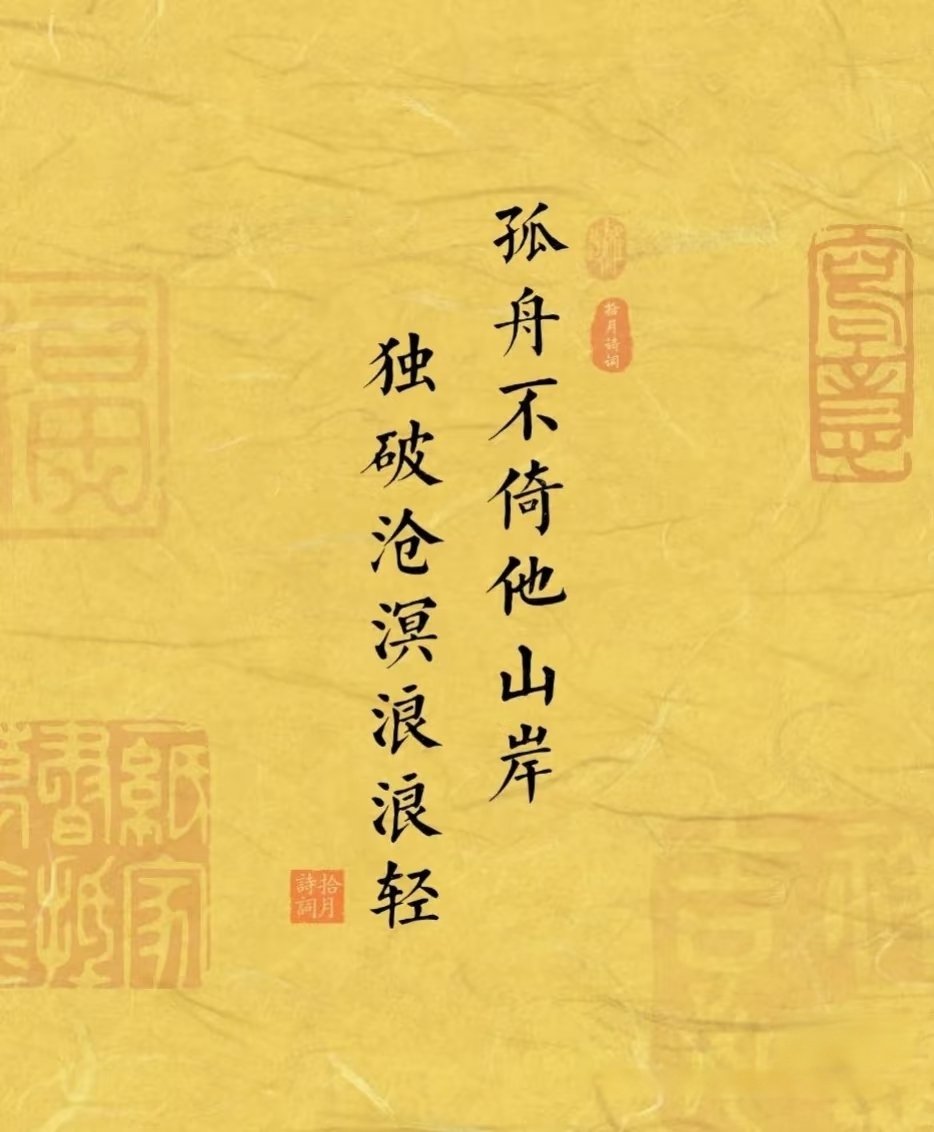 孤舟不倚他山岸
拾月诗词
独破沧溟浪浪轻
拾月
詩詞